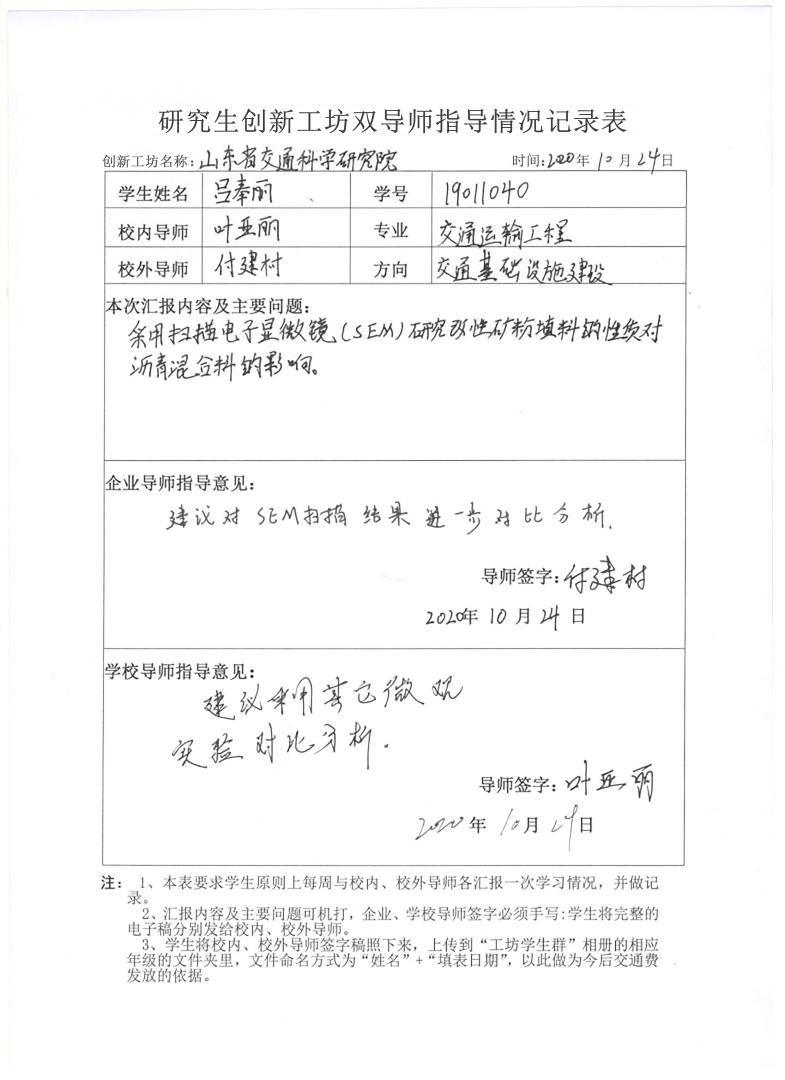 研究生创新工坊双导师指导情况记录表
创新工坊名称：山东省交通科学研究院 时间:2020年10月24日
学生姓名 吕奉丽 学号 19011040
校内导师 叶亚丽 专业 交通运输工程
校外导师 付建村 方向 交通基础设施建设
本次汇报内容及主要问题：
采用扫描电子显微镜(SEM)研究改性矿粉填料的性质对
沥青混合料的影响。
企业导师指导意见：
建议对SEM扫描结果进一步对比分析.
导师签字：付建村
2020年10月24日
学校导师指导意见：
建议采用其它微观
实验对比分析.
导师签字：叶亚丽
2020年10月24日
注： 1、本表要求学生原则上每周与校内、校外导师各汇报一次学习情况，并做记
录。
2、汇报内容及主要问题可机打，企业、学校导师签字必须手写；学生将完整的
电子稿分别发给校内、校外导师。
3、学生将校内、校外导师签字稿照下来，上传到“工坊学生群”相册的相应
年级的文件夹里，文件命名方式为“姓名”+“填表日期”，以此做为今后交通费
发放的依据。